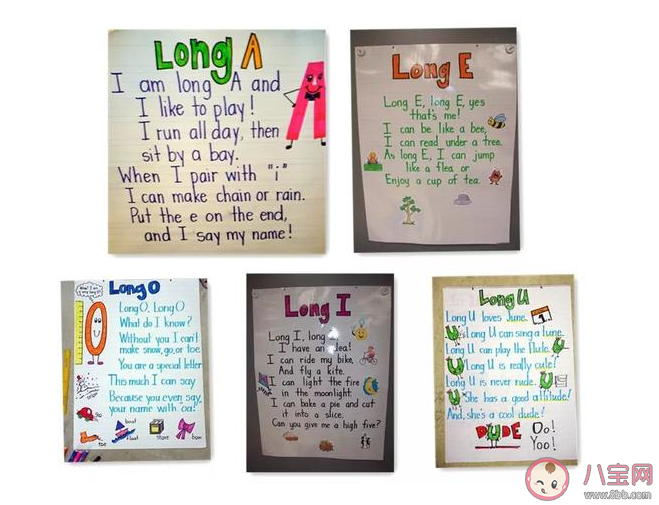 Long A
I am long A and
I like to play!
I run all day, then
sit by a bay.
When I pair with "i"
I can make chain or rain.
Put the e on the end,
and I say my name!
Long E
Long E, long E, yes
that's me!
I can be like a bee,
I can read under a tree.
As long E, I can jump
like a flea or
Enjoy a cup of tea.
Long O
Long O, Long O
What do I know?
Without you I can't
make snow, go, or toe
You are a special letter
This much I can say
Because you even say
your name with oa!
boat
float
toe
stove
bow
Long I
Long I, long
I have an idea!
I can ride my bike,
And fly a kite.
I can light the fire
in the moonlight.
I can bake a pie and cut
it into a slice.
Can you give me a high five?
Long U
Long U loves June.
Long U can sing a tune.
Long U can play the flute.
Long U is really cute!
Long U is never rude.
She has a good attitude!
And, she's a cool dude!
DUDE Oo!
Yoo!
八宝网
www.8bb.com